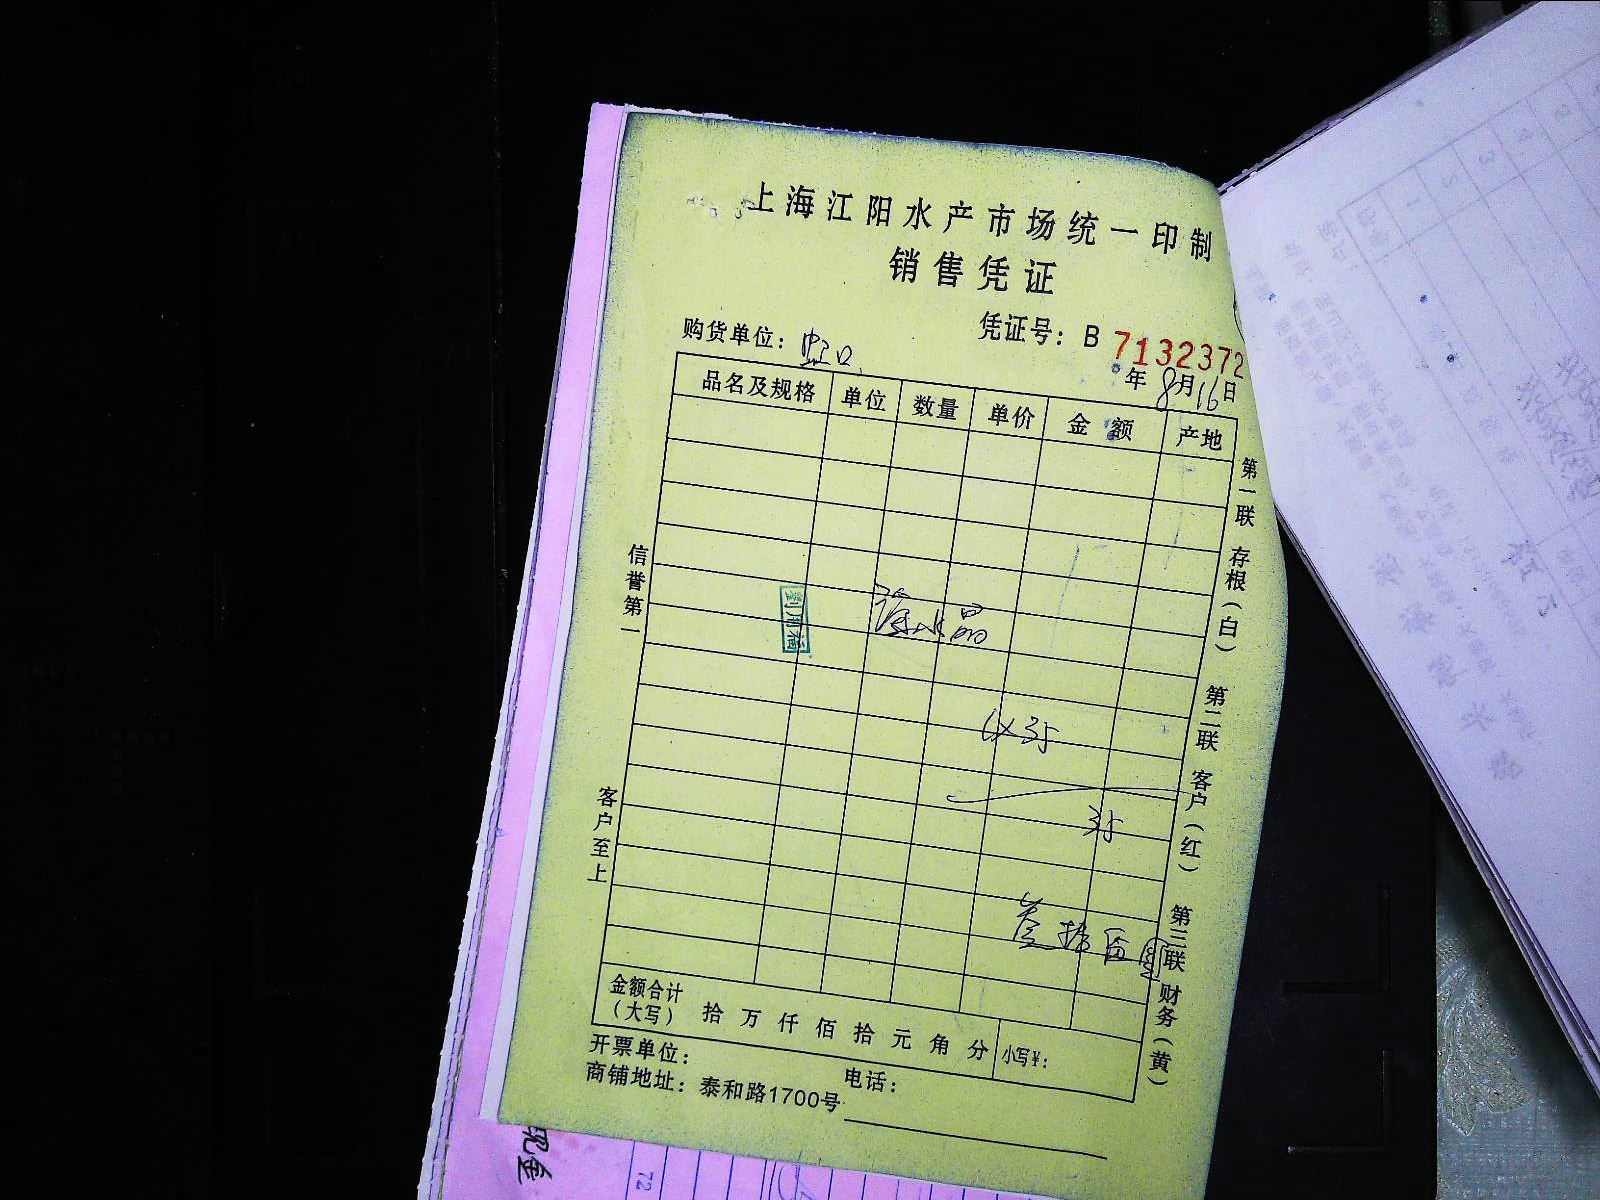 上海江阳水产市场统一印制
销售凭证
凭证号：B 7132372
购货单位：虹口
年8月16日
品名及规格 单位 数量 单价 金额 产地
水晶
35
35
金额合计（大写） 拾 万 仟 佰 拾 元 角 分 小写¥：
开票单位： 电话：
商铺地址：泰和路1700号
信誉第一 客户至上
第一联 存根（白） 第二联 客户（红） 第三联 财务（黄）
现金
72